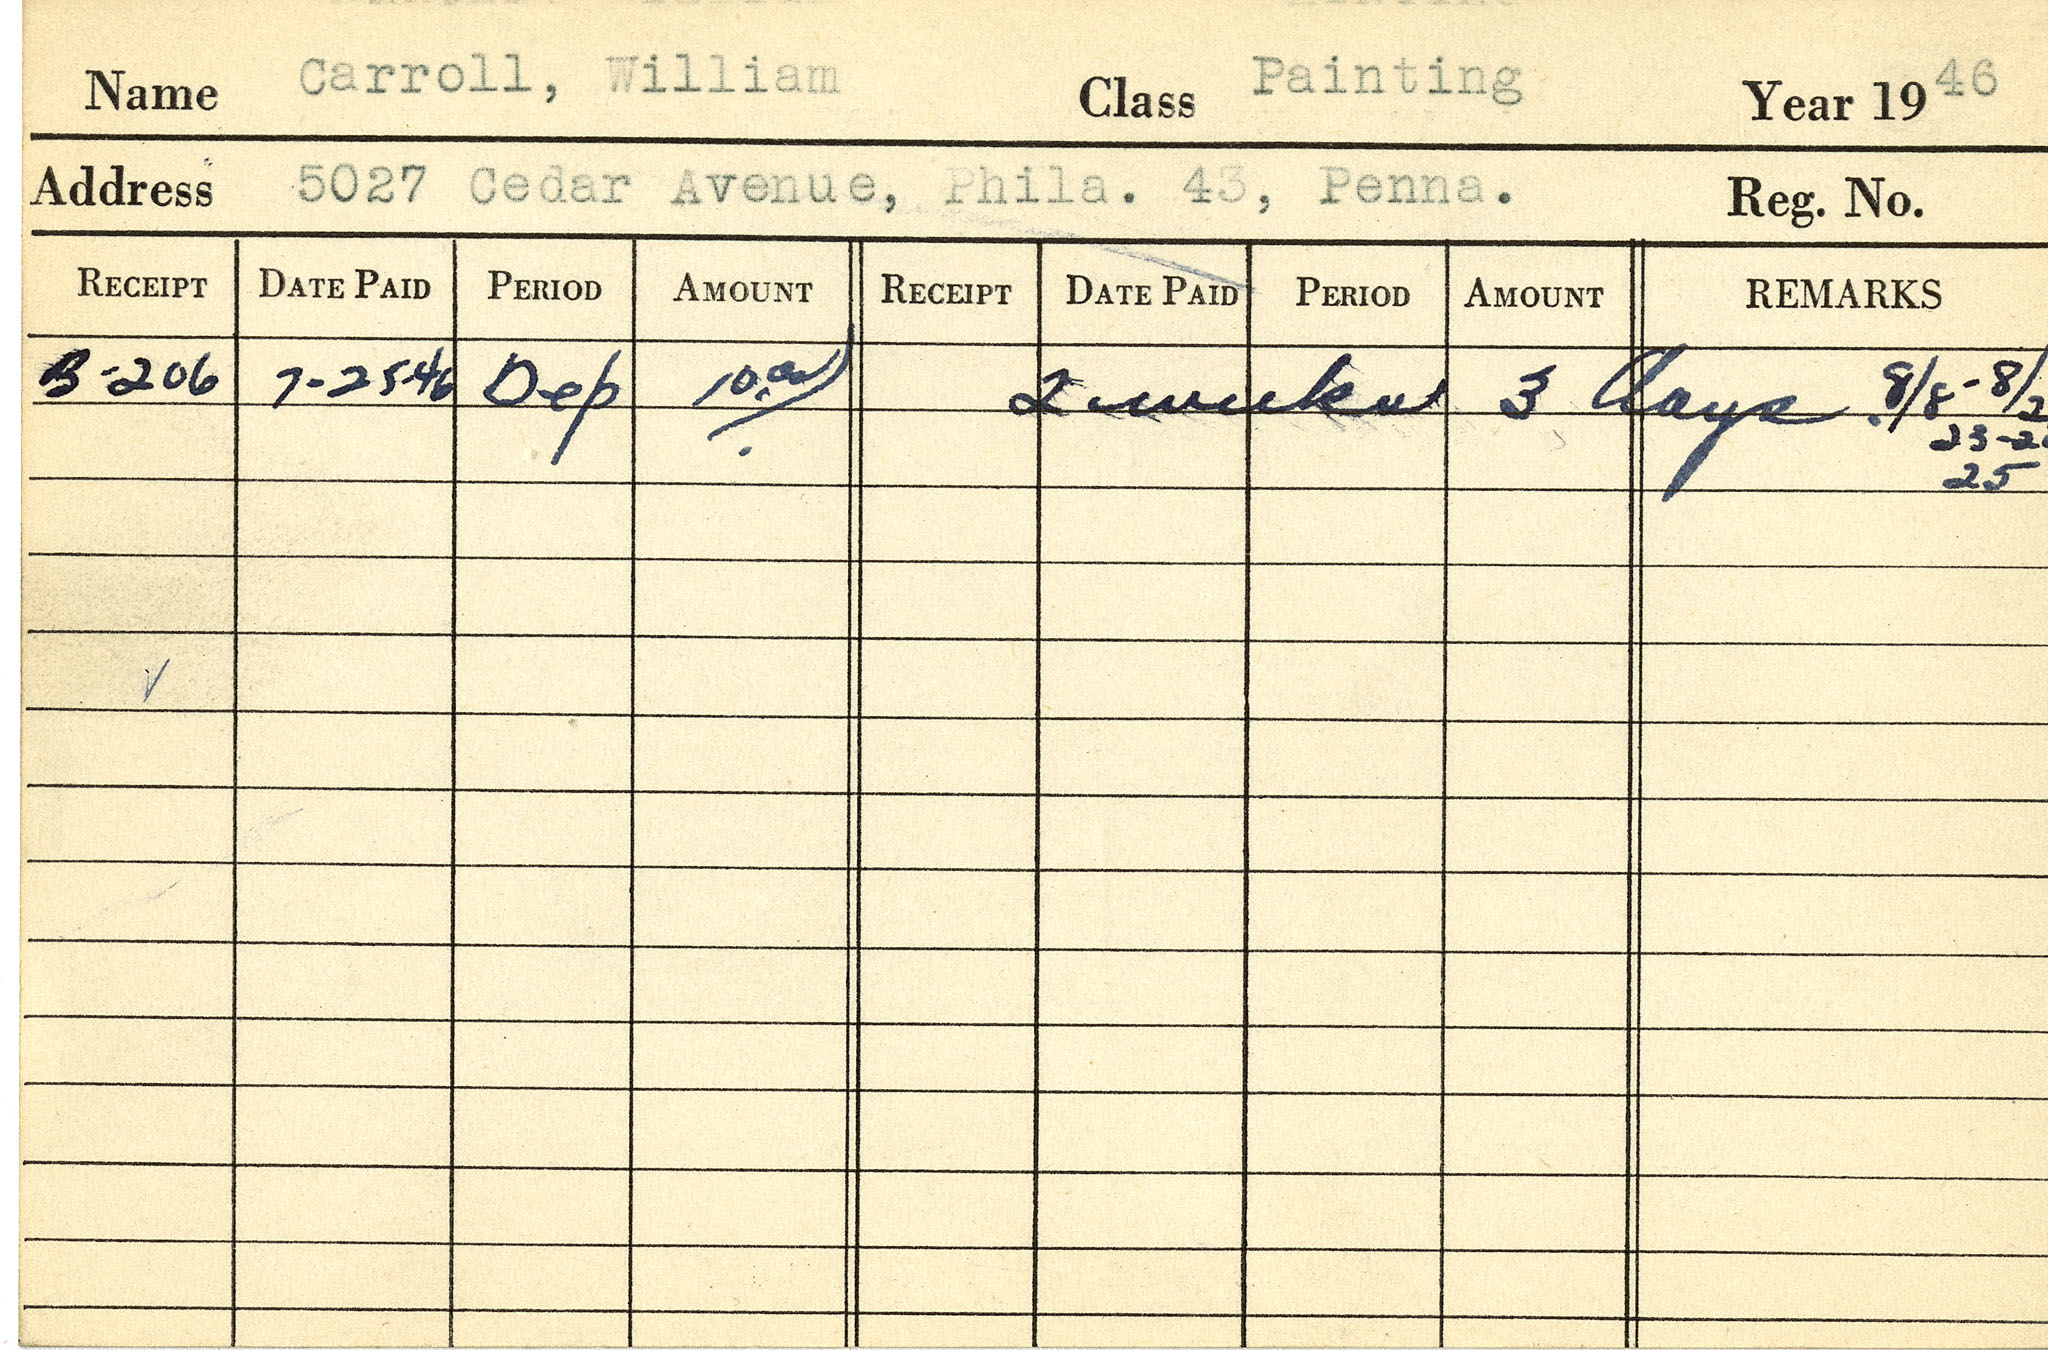 Name Carroll, William Class Painting Year 19 46
Address 5027 Cedar Avenue, Phila. 43, Penna. Reg. No.
RECEIPT DATE PAID PERIOD AMOUNT RECEIPT DATE PAID PERIOD AMOUNT REMARKS
B-206 7-25-46 Dep 10.00 2 weeks 3 days 8/8-8/2
23-2
25